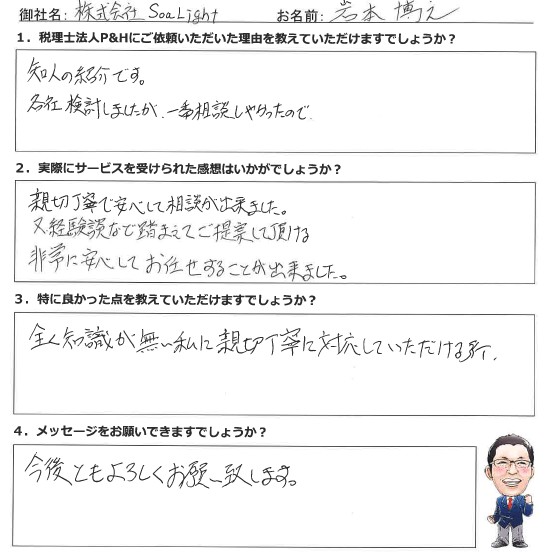 御社名: 株式会社 SoaLight お名前: 岩本 博之
1．税理士法人P&Hにご依頼いただいた理由を教えていただけますでしょうか？
知人の紹介です。
各社検討しましたが、一番相談しやすかったので
2．実際にサービスを受けられた感想はいかがでしょうか？
親切丁寧で安心して相談が出来ました。
又経験談など踏まえてご提案して頂ける
非常に安心してお任せすることが出来ました。
3．特に良かった点を教えていただけますでしょうか？
全く知識が無い私に親切丁寧に対応していただける所、
4．メッセージをお願いできますでしょうか？
今後ともよろしくお願い致します。